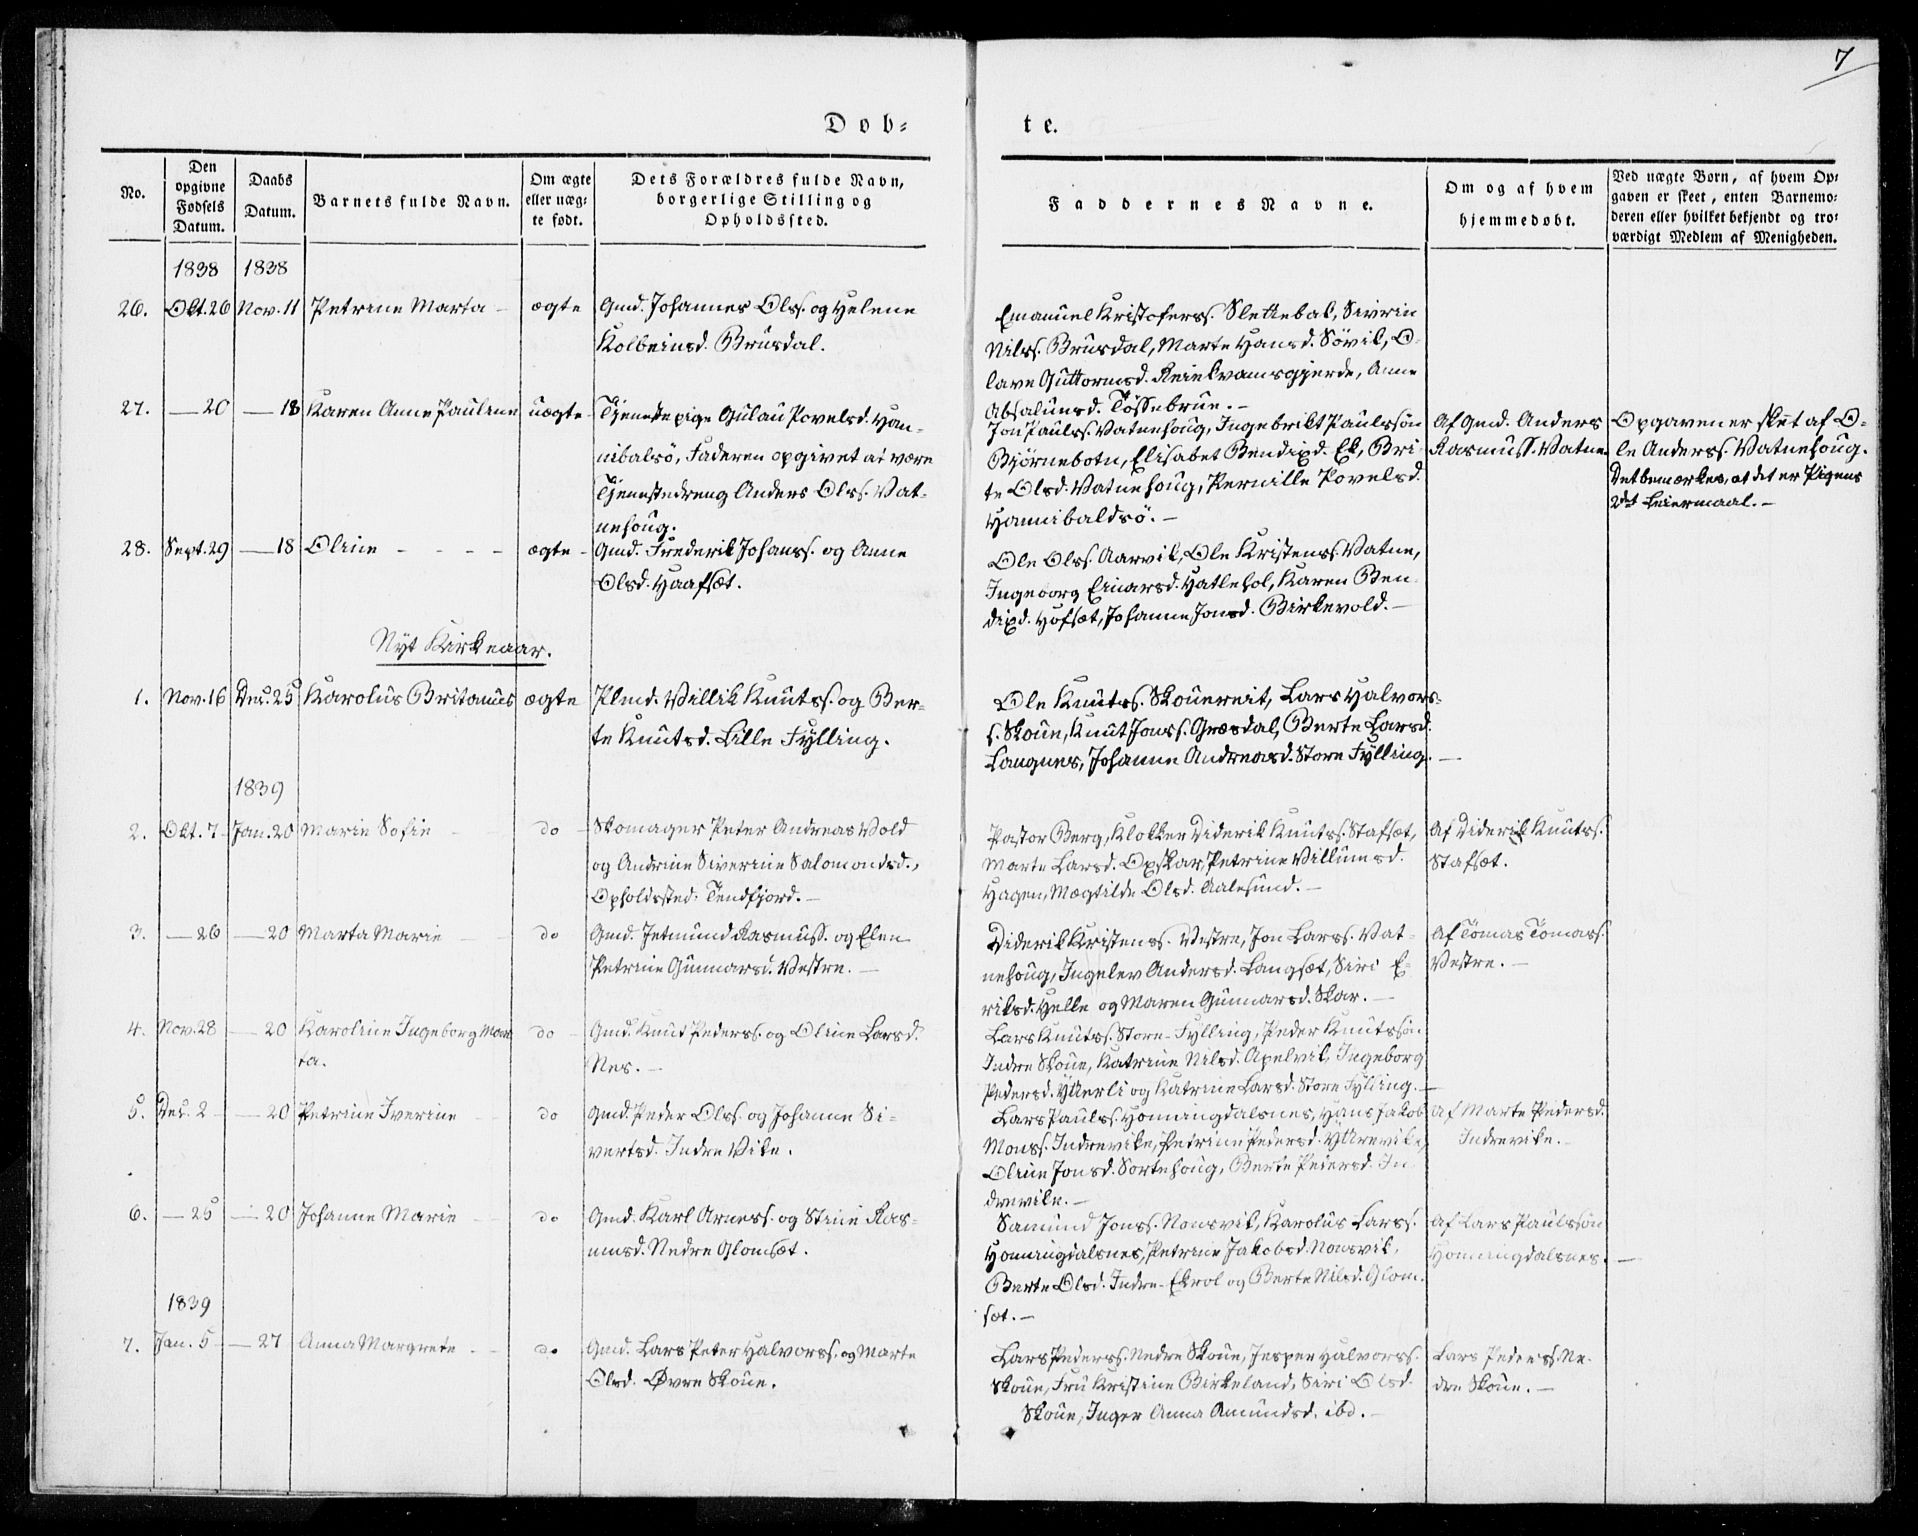 7
Døb-
te.
No.
Den opgivne Fødsels Datum.
Daabs Datum.
Barnets fulde Navn.
Om ægte eller uæg- te født.
Dets Forældres fulde Navn, borgerlige Stilling og Opholdssted.
Faddernes Navne.
Om og af hvem hjemmedøbt.
Ved uægte Børn, af hvem Op- gaven er skeet, enten Barnemo- deren eller hvilket bekjendt og tro- værdigt Medlem af Menigheden.
1838 1838
26. Okt. 26 Nov. 11 Petrine Marta - ægte Gmd. Johannes Olss. og Helene
Kolbeinsd. Brusdal.
Emanuel Kristoferss. Slettebak, Sivrin
Nilss. Brusdal, Marte Hansd. Søvik, O-
lave Guttormsd. Reiekvamsgjerde, Anne
Absalunsd. Tøssebrue. -
27. — 20 — 18 Karen Anne Pauline uægte Tjenestepige Gulau Povelsd. Han-
nibalsø, Faderen opgivet at være
Tjenestedreng Anders Olss. Vat-
nehoug.
Jon Paulss. Vatnehoug, Ingebrikt Paulssøn
Bjørnebotn, Elisabet Bendixd. Ek, Bri-
te Olsd. Vatnehoug, Pernille Povelsd.
Hannibaldsø. -
Af Gmd. Anders
Rasmuss. Vatne.
Opgaven er skèt af O-
le Anderss. Vatnehoug.
Det bemærkes, at det er Pigens
2det Leiermaal. -
28. Sept. 29 — 18 Oline - - - - ægte - Gmd. Frederik Johanss. og Anne
Olsd. Haafsæt.
Ole Olss. Aarvik, Ole Kristenss. Vatne,
Ingeborg Einarsd. Hatlehol, Karen Ben-
dixd. Hofsæt, Johanne Jonsd. Birkevold. -
Nyt Kirkeaar.
1. Nov. 16 Dec. 25 Karolus Britanus ægte Plmd. Villik Knutss. og Ber-
te Knutsd. Lille Fylling.
Ole Knutss. Skouereit, Lars Halvors-
s. Skoue, Knut Jonss. Græsdal, Berte Larsd.
Langnes, Johanne Andreasd. Store Fylling. -
1839
2. Okt. 7 Jan. 20 Marie Sofie do Skomager Peter Andreas Vold
og Andrine Siverine Salomondsd.,
Opholdssted: Tendfjord. -
Pastor Berg, Klokker Diderik Knutss. Stafsæt,
Marte Larsd. Opskar, Petrine Villumsd.
Hagen, Mægtilde Olsd. Aalesund. -
Af Diderik Knutss.
Stafsæt.
3. — 26 — 20 Marta Marie do Gmd. Jetmund Rasmuss. og Elen
Petrine Gunnarsd. Vestre. -
Diderik Kristenss. Vestre, Jon Larss. Vat-
nehoug, Ingelev Andersd. Langsæt, Siri E-
riksd. Helle og Maren Gunnarsd. Skar. -
Af Tomas Tomass.
Vestre. -
4. Nov. 28 — 20 Karoline Ingeborg Mar-
ta.
do Gmd. Knut Pederss. og Oline Larsd.
Nes. -
Lars Knutss. Store-Fylling, Peder Knutssøn
Indre Skoue, Katrine Nilsd. Apelvik, Ingeborg
Pedersd. Ytterli og Katrine Larsd. Store Fylling. -
5. Dec. 2 — 20 Petrine Iverine do Gmd. Peder Olss. og Johanne Si-
vertsd. Indre Vike.
Lars Paulss. Honningdalsnes, Hans Jakob
Monss. Indrevike, Petrine Pedersd. Ytrevike,
Oline Jonsd. Sortehoug, Berte Pedersd. In-
drevike. -
Af Marte Pedersd.
Indrevike. -
6. — 25 — 20 Johanne Marie do Gmd. Karl Arness. og Stine Ras-
musd. Nedre Glomsæt.
Samund Jonss. Nonsvik, Karolus Larss.
Honningdalsnes, Petrine Jakobsd. Nonsvik,
Berte Olsd. Indre-Ekrol og Berte Nilsd. Glom-
sæt. -
Af Lars Paulssøn
Honningdalsnes. -
1839
7. Jan. 5 — 27 Anna Margrete - - do Gmd. Lars Peter Halvorss. og Marte
Olsd. Øvre Skoue.
Lars Pederss. Nedre Skoue, Jesper Halvorss.
Skoue, Fru Kristine Birkeland, Siri Olsd.
Skoue, Inger Anna Amundsd. ibd. -
Lars Pederss. Ne-
dre Skoue. -